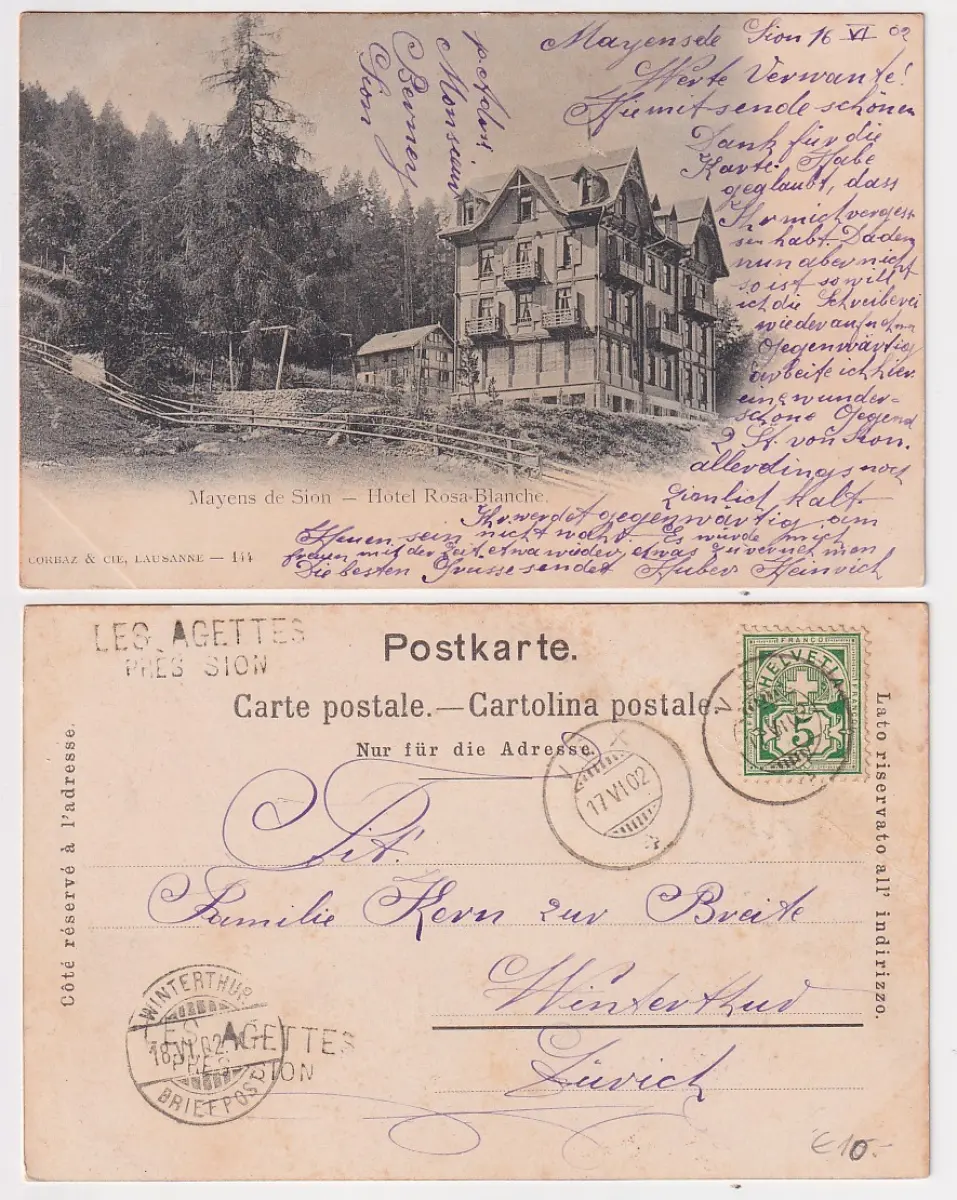 Mayens de Sion 16 VI 02
Werte Verwante!
Hiemit sende schönen
Dank für die
Karte. Habe
geglaubt, dass
Ihr mich verges-
sen habt. Da dem
nun aber nicht
so ist so will
ich die Schreiberei
wieder aufnehm
Gegenwärtig
arbeite ich hier.
eine wunder-
schöne Gegend
2 St. von Sion.
allerdings noch
zimlich kalt.
Ihr werdet gegenwärtig am
Heuen sein nicht wahr. Es würde mich
freuen mit der Zeit etwa wieder etwas zu vernehmen
Die besten Grüsse sendet Huber Heinrich
p. Adr.
Monsieur
Berney
Sion
Mayens de Sion — Hôtel Rosa-Blanche.
CORBAZ & CIE, LAUSANNE — 144
LES AGETTES
PRÈS SION
Postkarte.
Carte postale.—Cartolina postale.
Nur für die Adresse.
Côté réservé à l'adresse.
Lato riservato all' indirizzo.
FRANCO
HELVETIA
5
FRANCO
FRANCO
VEX
17 VI 02
Tit.
Familie Kern zur Breite
Winterthur
Zürich
WINTERTHUR
18 VI 02
BRIEFPOST
LES AGETTES
PRÈS SION
€10.-